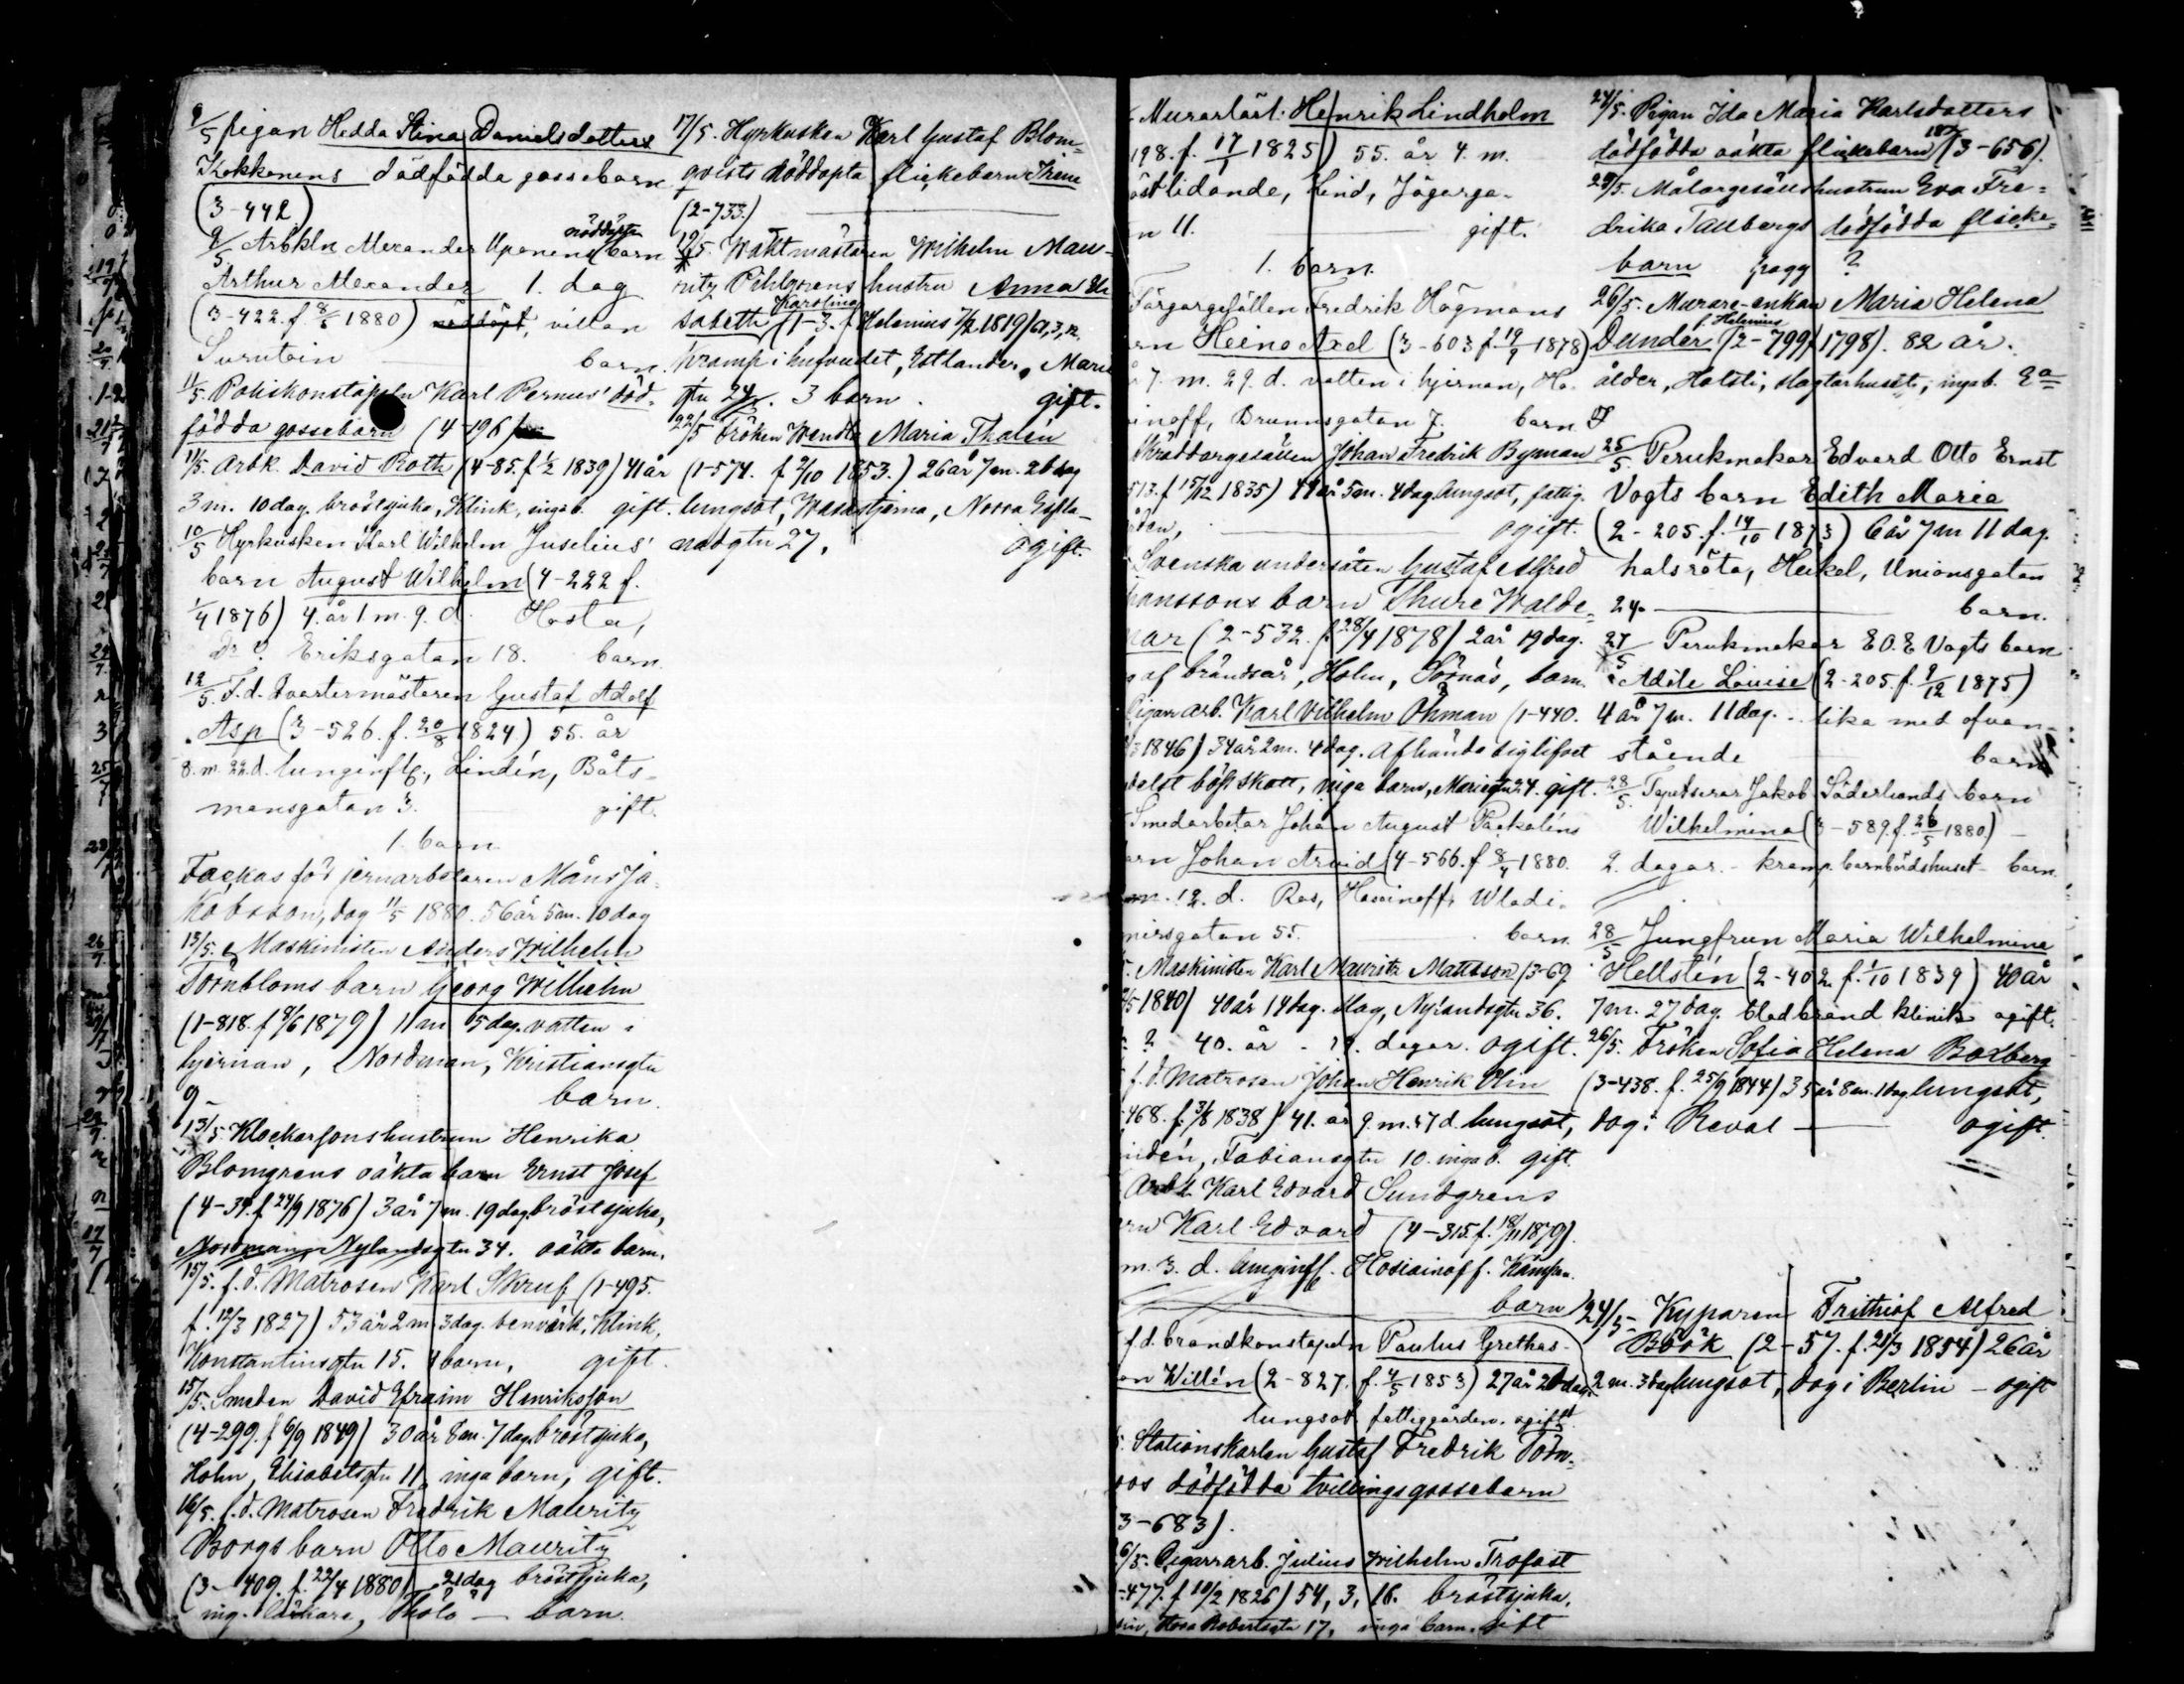 9/5 pigan Hedda Stina Danielsdotters
Kokkonens dödfödda gossebarn
(3-442)
9/5 Arbkln Alexander Uponens nöddöpta barn
Arthur Alexander 1. dag
(3-422. f. 8/5 1880) villan
Surutoin barn.
11/5. Poliskonstapeln Karl Pernus' död-
födda gossebarn (4-196)
11/5. Arbk. David Roth (4-85. f. 1/2 1839) 41 år
3 m. 10 dag. bröstsjuka, Klink, inga b. gift.
10/5 Hyrkusken Karl Wilhelm Juselius'
barn August Wilhelm (4-222 f.
1/4 1876) 4. år 1. m. 9. d. Hosta,
Dr ?. Eriksgatan 18. barn.
12/5 F. d. Qvartermästaren Gustaf Adolf
Asp (3-526. f. 20/8 1824) 55. år
8. m. 22. d. lunginfl., Lindén, Båts-
mansgatan 3. gift.
1. barn
Tackas för jernarbetaren Måns Ja-
kobsson, dog 11/5 1880. 56 år 5 m. 10 dag
13/5. Maskinisten Anders Wilhelm
Törnbloms barn Georg Wilhelm
(1-818. f. 8/6 1879) 11 m 5 dag. vatten i
hjernan, Nordman, Kristiansgtn
9- barn.
13/5. Klockarsonshustrun Henrika
Blomgrens oäkta barn Ernst Josef
(4-34. f. 24/9 1876) 3 år 7 m. 19 dag. bröstsjuka,
Nordmann Nylandsgtn 34. oäkta barn.
15/5. f. d. Matrosen Karl Skruf (1-495.
f. 12/3 1827) 53 år 2 m 3 dag. benvärk, Klink,
Konstantinsgtn 15. 4 barn, gift.
15/5. Smeden David Efraim Henriksson
(4-299. f. 6/9 1849) 30 år 8 m. 7 dag. bröstsjuka,
Holm, Elisabetsgtn 11, inga barn, gift.
16/5. f. d. Matrosen Fredrik Mauritz
Borgs barn Otto Mauritz
(3-409. f. 22/4 1880) 21 dag bröstsjuka,
ing. läkare, Thölö — barn.
17/5. Hyrkusken Karl Gustaf Blom-
qvists nöddöpta flickebarn Irene
(2-733.)
19/5. Waktmästaren Wilhelm Mau-
ritz Pihlgrens hustru Anna Eli
sabeth Karolina (1-3. f. Helenius 7/2 1819) 61, 3, 12.
kramp i hufvudet, Estlander, Marie
gtn 24. 3 barn. gift.
22/5 Fröken Wendla Maria Thalén
(1-574. f. 2/10 1853.) 26 år 7 m. 26 dag
lungsot, Wasastjerna, Norra Espla-
nadgtn 27, ogift.
Murarlärl. Henrik Lindholm
198. f. 17/1 1825) 55. år 4. m.
östlidande, Lind, Jägarga-
n 11. gift.
1. barn.
Färgargesällen Fredrik Högmans
rn Heino Axel (3-603 f. 19/9 1878)
7. m. 29. d. vatten i hjernan, Ho-
inoff, Brunnsgatan 7. barn
Skräddargesällen Johan Fredrik Byman
513. f. 15/12 1835) 44 år 5 m. 4 dag lungsot, fattig.
ogift.
Svenska undersåten Gustaf Alfred
hanssons barn Thure Walde-
mar (2-532. f. 28/4 1878) 2 år 19 dag.
af brandsår, Holm, Sörnäs, barn.
Cigarrarb. Karl Vilhelm Öhman (1-440.
/3 1846) 34 år 2 m. 4 dag. Afhände sig lifvet
medelst bösskott, inga barn, Mariegtn 24. gift.
Smedarbetar Johan August Packaléns
arn Johan Arvid (4-566. f. 8/4 1880.
m. 12. d. Ros, Hosainoff, Wladi-
mirsgatan 55. barn.
Maskinisten Karl Mauritz Mattsson (3-69.
/5 1840) 40 år 14 dag. slag, Nylandsgtn 36.
? 40. år - 14. dagar. ogift.
f. d. Matrosen Johan Henrik Olin
468. f. 31/8 1838) 41. år 9. m. 17 d. lungsot,
indén, Fabiansgtn 10. inga b. gift.
Arbk Karl Edvard Sundgrens
rn Karl Edvard (4-315. f. 18/11 1879).
m. 3. d. lunginfl. Hosiainoff. Kampn.
barn
f. d. brandkonstapeln Paulus Grethas-
on Willén (2-827. f. 4/5 1853) 27 år 20 dag.
lungsot fattiggården. ogift.
Stationskarlen Gustaf Fredrik Törn-
ros dödfödda tvillingsgossebarn
3-683).
6/5. Cigarrarb. Julius Wilhelm Trofast
-477. f. 10/2 1826) 54, 3, 16. bröstsjuka,
Stora Robertsgtn 17, inga barn. gift
24/5. Pigan Ida Maria Karlsdotters
dödfödda oäkta flickebarn (3-656).
25/5. Målargesällshustrun Eva Fre-
drika Tallbergs dödfödda flicke-
barn ?
26/5. Murare-enkan Maria Helena
Dunder f. Helenius (2-799 f. 1798). 82 år.
ålder, Hotsti, slagtarhuset, inga b. E=a
25/5 Perukmakar Edvard Otto Ernst
Vogts barn Edith Maria
(2-205. f. 14/10 1873) 6 år 7 m 11 dag.
halsröta, Heikel, Unionsgatan
24. barn.
27/5 Perukmakar E. O. E Vogts barn
Adèle Louise (2-205. f. 9/12 1875)
4 år 7 m. 11 dag. - lika med ofvan-
stående barn
28/5. Tapetserar Jakob Söderlunds barn
Wilhelmina (3-589. f. 26/5 1880) -
2. dagar. - kramp. barnbördshuset - barn.
28/5 Jungfrun Maria Wilhelmina
Hellstén (2-402. f. 1/10 1839) 40 år
7 m. 27 dag. blodbrand klinik ogift.
26/5. Fröken Sofia Helena Boxberg
(3-438. f. 25/9 1844) 35 år 8 m. 1 dag lungsot,
dog i Reval — ogift.
24/5 - Kyparen Frithiof Alfred
Böök (2-57. f. 21/3 1854) 26 år
2 m. 3 dag lungsot, dog i Berlin - ogift